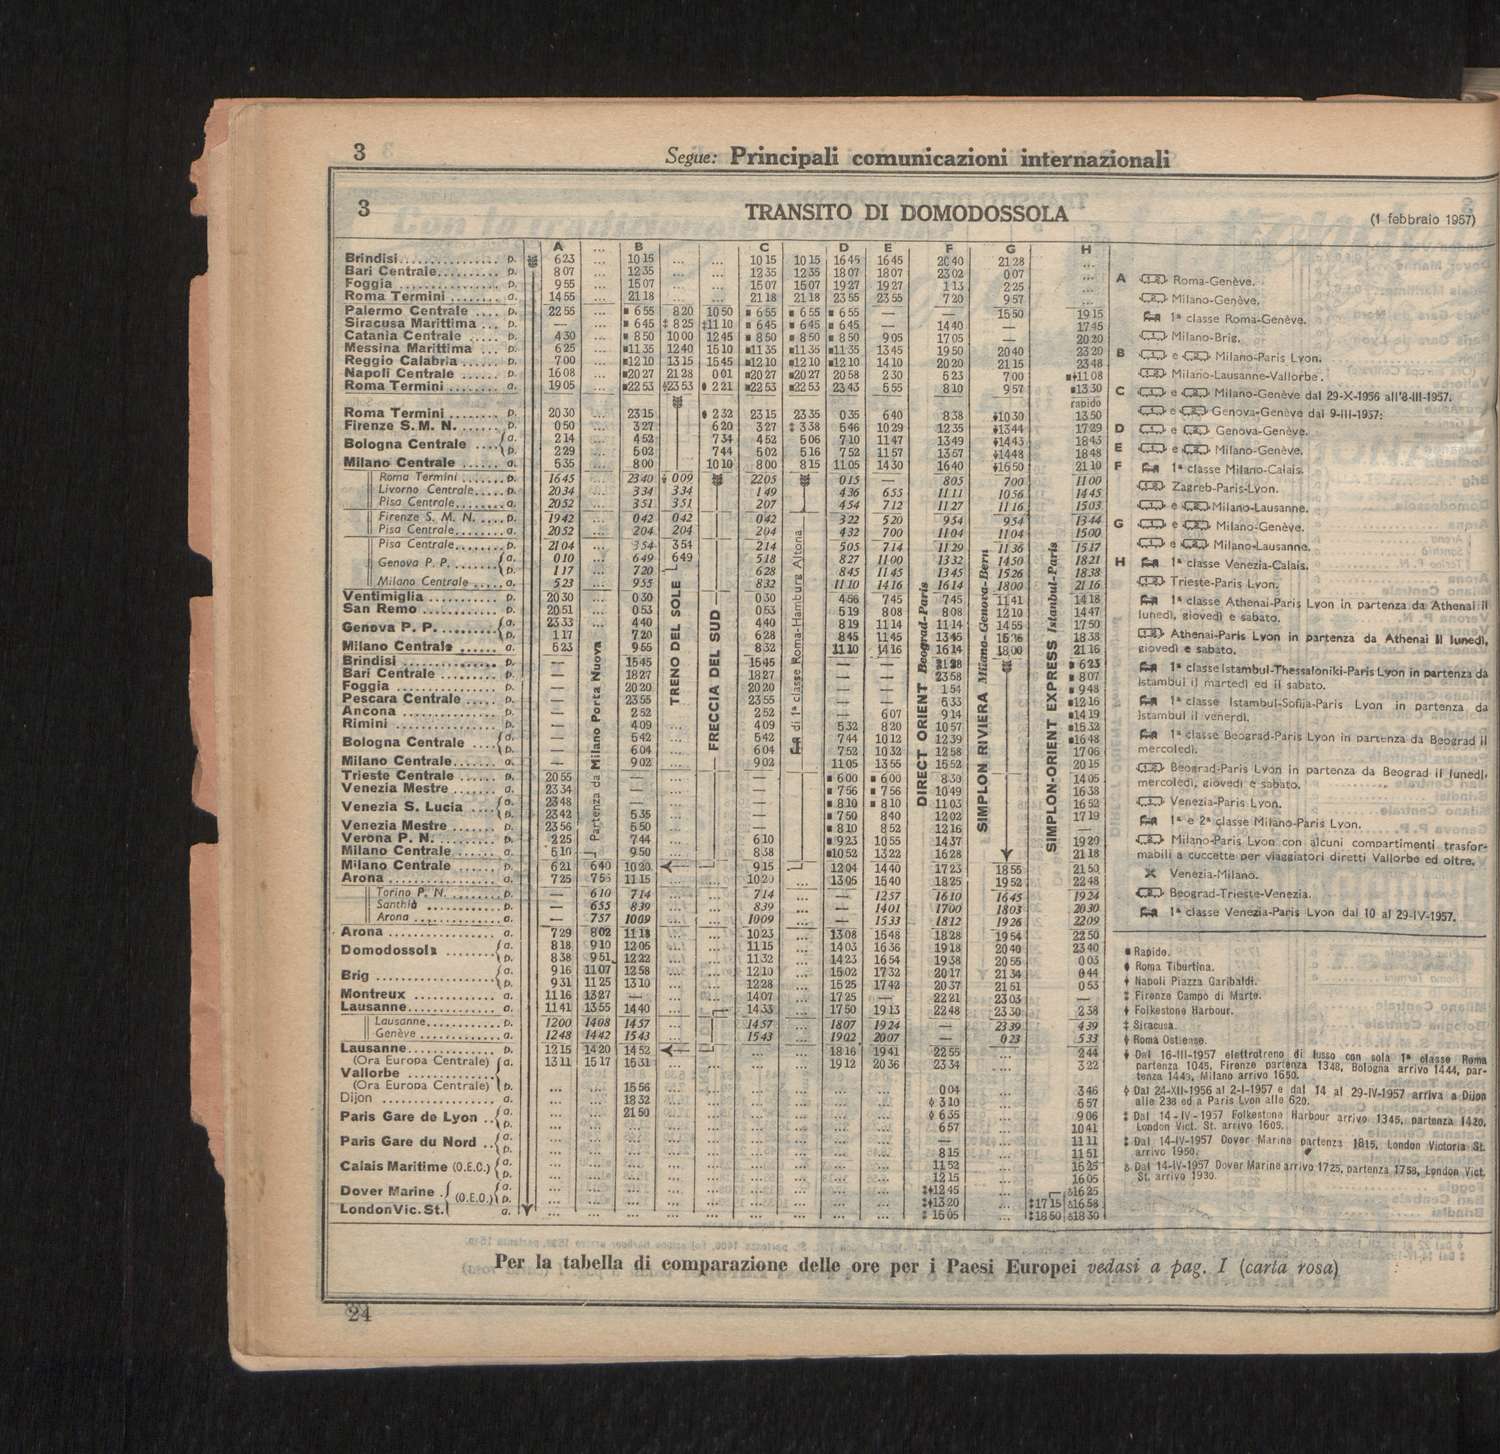 3
Segue: Principali comunicazioni internazionali
3
TRANSITO DI DOMODOSSOLA
(1 febbraio 1957)
A ... B C D E F G H
Brindisi p. 6 23 ... 10 15 ... ... 10 15 10 15 16 45 16 45 20 40 21 28 ...
Bari Centrale p. 8 07 ... 12 35 ... ... 12 35 12 35 18 07 18 07 23 02 0 07 ...
Foggia p. 9 55 ... 15 07 ... ... 15 07 15 07 19 27 19 27 1 13 2 25 ...
Roma Termini a. 14 55 ... 21 18 ... ... 21 18 21 18 23 55 23 55 7 20 9 57 ...
Palermo Centrale p. 22 55 ... ■ 6 55 8 20 10 50 ■ 6 55 ■ 6 55 ■ 6 55 — — 15 50 19 15
Siracusa Marittima p. — ... ■ 6 45 ‡ 8 25 ‡11 10 ■ 6 45 ■ 6 45 ■ 6 45 — 14 40 — 17 45
Catania Centrale p. 4 30 ... ■ 8 50 10 00 12 45 ■ 8 50 ■ 8 50 ■ 8 50 9 05 17 05 — 20 20
Messina Marittima p. 6 25 ... ■11 35 12 40 15 10 ■11 35 ■11 35 ■11 35 13 45 19 50 20 40 23 20
Reggio Calabria p. 7 00 ... ■12 10 13 15 15 45 ■12 10 ■12 10 ■12 10 14 10 20 20 21 15 23 48
Napoli Centrale p. 16 08 ... ■20 27 21 28 0 01 ■20 27 ■20 27 20 58 2 30 5 23 7 00 ■♦11 08
Roma Termini a. 19 05 ... ■22 53 ‡23 53 ♦ 2 21 ■22 53 ■22 53 23 43 5 55 8 10 9 57 ■13 30
rapido
Roma Termini p. 20 30 ... 23 15 ♦ 2 32 23 15 23 35 0 35 6 40 8 38 ♦10 30 13 50
Firenze S. M. N. p. 0 50 ... 3 27 6 20 3 27 ‡ 3 38 5 46 10 29 12 35 ♦13 44 17 29
Bologna Centrale a. 2 14 ... 4 52 7 34 4 52 5 06 7 10 11 47 13 49 ♦14 43 18 43
p. 2 29 ... 5 02 7 44 5 02 5 16 7 52 11 57 13 57 ♦14 48 18 48
Milano Centrale a. 5 35 ... 8 00 10 10 8 00 8 15 11 05 14 30 16 40 ♦16 50 21 10
Roma Termini p. 16 45 ... 23 40 0 09 22 05 0 15 — 8 05 7 00 11 00
Livorno Centrale p. 20 34 ... 3 34 3 34 1 49 4 36 6 55 11 11 10 56 14 45
Pisa Centrale a. 20 52 ... 3 51 3 51 2 07 4 54 7 12 11 27 11 16 15 03
Firenze S. M. N. p. 19 42 ... 0 42 0 42 0 42 3 22 5 20 9 54 9 54 13 44
Pisa Centrale a. 20 52 ... 2 04 2 04 2 04 4 32 7 00 11 04 11 04 15 00
Pisa Centrale p. 21 04 ... 3 54 3 54 2 14 5 05 7 14 11 29 11 36 15 17
Genova P. P. a. 0 10 ... 6 49 6 49 5 18 8 27 11 00 13 32 14 50 18 21
p. 1 17 ... 7 20 6 28 8 45 11 45 13 45 15 26 18 38
Milano Centrale a. 5 23 ... 9 55 8 32 11 10 14 16 16 14 18 00 21 16
Ventimiglia p. 20 30 0 30 0 30 4 56 7 45 7 45 11 41 14 18
San Remo p. 20 51 0 53 0 53 5 19 8 08 8 08 12 10 14 47
Genova P. P. a. 23 33 4 40 4 40 8 19 11 14 11 14 14 55 17 50
p. 1 17 7 20 6 28 8 45 11 45 13 45 18 38
Milano Centrale a. 5 23 9 55 8 32 11 10 14 16 16 14 18 00 21 16
Brindisi p. — 15 45 15 45 — — 21 28 ■ 6 23
Bari Centrale p. — 18 27 18 27 — — 23 58 ■ 8 07
Foggia p. — 20 20 20 20 — — 1 54 ■ 9 48
Pescara Centrale p. — 23 55 23 55 — — 5 33 ■12 16
Ancona p. — 2 52 2 52 — 6 07 9 14 ■14 19
Rimini p. — 4 09 4 09 5 32 8 20 10 57 ■15 32
Bologna Centrale a. — 5 42 5 42 7 44 10 12 12 39 ■16 48
p. — 6 04 6 04 7 52 10 32 12 58 17 06
Milano Centrale a. — 9 02 9 02 11 05 13 55 15 52 20 15
Trieste Centrale p. 20 55 — — ■ 6 00 ■ 6 00 8 30 14 05
Venezia Mestre a. 23 34 — — ■ 7 56 ■ 7 56 10 49 16 38
Venezia S. Lucia a. 23 48 — — ■ 8 10 ■ 8 10 11 03 16 52
p. 23 42 5 35 — ■ 7 50 8 40 12 02 17 19
Venezia Mestre p. 23 56 5 50 — ■ 8 10 8 52 12 16 —
Verona P. N. p. 2 25 7 44 6 10 ■ 9 23 10 55 14 37 19 20
Milano Centrale a. 5 10 9 50 8 38 ■10 52 13 22 16 28 21 18
Milano Centrale p. 6 21 6 40 10 20 9 15 12 04 14 40 17 23 18 55 21 50
Arona a. 7 25 11 15 ... ... ... 13 05 15 40 18 25 19 52 22 48
Torino P. N. p. — 6 10 7 14 ... ... 7 14 ... — 12 57 16 10 16 45 19 24
Santhià p. — 6 55 8 39 ... ... 8 39 ... — 14 01 17 00 18 03 20 30
Arona a. — 7 57 10 09 ... ... 10 09 ... — 15 33 18 12 19 26 22 09
Arona a. 7 29 8 02 11 18 ... ... 10 23 ... 13 08 15 48 18 28 19 54 22 50
Domodossola a. 8 18 9 10 12 05 ... ... 11 15 ... 14 03 16 36 19 18 20 40 23 40
p. 8 38 9 51 12 22 ... ... 11 32 ... 14 23 16 54 19 38 20 55 0 03
Brig a. 9 16 11 07 12 58 ... ... 12 10 ... 15 02 17 32 20 17 21 34 0 44
p. 9 31 11 25 13 10 ... ... 12 28 ... 15 25 17 42 20 37 21 51 0 53
Montreux a. 11 16 13 27 — ... ... 14 07 ... 17 25 — 22 21 23 03 —
Lausanne a. 11 41 13 55 14 40 ... 14 33 ... 17 50 19 13 22 48 23 30 2 38
Lausanne p. 12 00 14 08 14 57 ... 14 57 ... 18 07 19 24 — 23 39 4 39
Genève a. 12 48 14 42 15 43 ... 15 43 ... 19 02 20 07 — 0 23 5 33
Lausanne p. 12 15 14 20 14 52 ... ... 18 16 19 41 22 55 ... 2 44
(Ora Europa Centrale) a. 13 11 15 17 15 31 ... ... ... ... 19 12 20 36 23 34 ... 3 22
Vallorbe
(Ora Europa Centrale) p. ... ... 15 56 ... ... ... ... ... ... 0 04 ... 3 46
Dijon a. ... ... 18 32 ... ... ... ... ... ... ◊ 3 10 ... 5 57
Paris Gare de Lyon a. ... ... 21 50 ... ... ... ... ... ... ◊ 6 35 ... 9 06
p. ... ... ... ... ... ... ... ... ... 6 57 ... 10 41
Paris Gare du Nord a. ... ... ... ... ... ... ... ... ... — ... 11 11
p. ... ... ... ... ... ... ... ... ... 8 15 ... 11 51
Calais Maritime (O.E.O.) a. ... ... ... ... ... ... ... ... ... 11 52 ... 16 25
p. ... ... ... ... ... ... ... ... ... 12 15 ... 16 05
Dover Marine (O.E.O.) a. ... ... ... ... ... ... ... ... ... ‡♦12 45 ... 16 25
p. ... ... ... ... ... ... ... ... ... ‡♦13 20 ... ‡17 15 16 58
London Vic. St. a. ... ... ... ... ... ... ... ... ... ‡ 16 05 ... ‡18 50 18 30
Partenza da Milano Porta Nuova
TRENO DEL SOLE
FRECCIA DEL SUD
di 1ª classe Roma-Hamburg Altona
DIRECT ORIENT Beograd-Paris
SIMPLON RIVIERA Milano-Genova-Bern
SIMPLON-ORIENT EXPRESS Istanbul-Paris
A Roma-Genève.
Milano-Genève.
1ª classe Roma-Genève.
Milano-Brig.
B e Milano-Paris Lyon.
Milano-Lausanne-Vallorbe.
C e Milano-Genève dal 29-X-1956 all'8-III-1957.
e Genova-Genève dal 9-III-1957:
D e Genova-Genève.
E e Milano-Genève.
F 1ª classe Milano-Calais.
Zagreb-Paris-Lyon.
e Milano-Lausanne.
G e Milano-Genève.
e Milano-Lausanne.
H 1ª classe Venezia-Calais.
Trieste-Paris Lyon.
1ª classe Athenai-Paris Lyon in partenza da Athenai il
lunedì, giovedì e sabato.
Athenai-Paris Lyon in partenza da Athenai il lunedì,
giovedì e sabato.
1ª classe Istambul-Thessaloniki-Paris Lyon in partenza da
Istambul il martedì ed il sabato.
1ª classe Istambul-Sofija-Paris Lyon in partenza da
Istambul il venerdì.
1ª classe Beograd-Paris Lyon in partenza da Beograd il
mercoledì.
Beograd-Paris Lyon in partenza da Beograd il lunedì,
mercoledì, giovedì e sabato.
Venezia-Paris Lyon.
1ª e 2ª classe Milano-Paris Lyon.
Milano-Paris Lyon con alcuni compartimenti trasfor-
mabili a cuccette per viaggiatori diretti Vallorbe ed oltre.
Venezia-Milano.
Beograd-Trieste-Venezia.
1ª classe Venezia-Paris Lyon dal 10 al 29-IV-1957.
■ Rapido.
♦ Roma Tiburtina.
Napoli Piazza Garibaldi.
‡ Firenze Campo di Marte.
♦ Folkestone Harbour.
‡ Siracusa.
Roma Ostiense.
♦ Dal 16-III-1957 elettrotreno di lusso con sola 1ª classe Roma
partenza 1045, Firenze partenza 1348, Bologna arrivo 1444, par-
tenza 1449, Milano arrivo 1650.
◊ Dal 24-XII-1956 al 2-I-1957 e dal 14 al 29-IV-1957 arriva a Dijon
alle 238 ed a Paris Lyon alle 620.
‡ Dal 14-IV-1957 Folkestone Harbour arrivo 1345, partenza 1420,
London Vict. St. arrivo 1605.
‡ Dal 14-IV-1957 Dover Marine partenza 1815, London Victoria St.
arrivo 1950.
Dal 14-IV-1957 Dover Marine arrivo 1725, partenza 1758, London Vict.
St. arrivo 1930.
Per la tabella di comparazione delle ore per i Paesi Europei vedasi a pag. I (carta rosa)
24